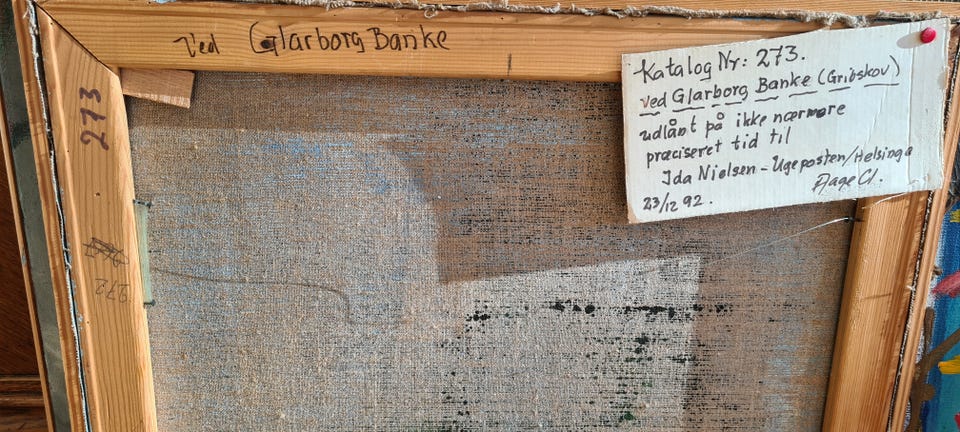 Ved Glarborg Banke
Katalog Nr: 273.
ved Glarborg Banke (Gribskov)
udlånt på ikke nærmere
præciseret tid til
Ida Nielsen - Ugeposten/Helsinge
Aage Cl.
23/12 92.
273
272